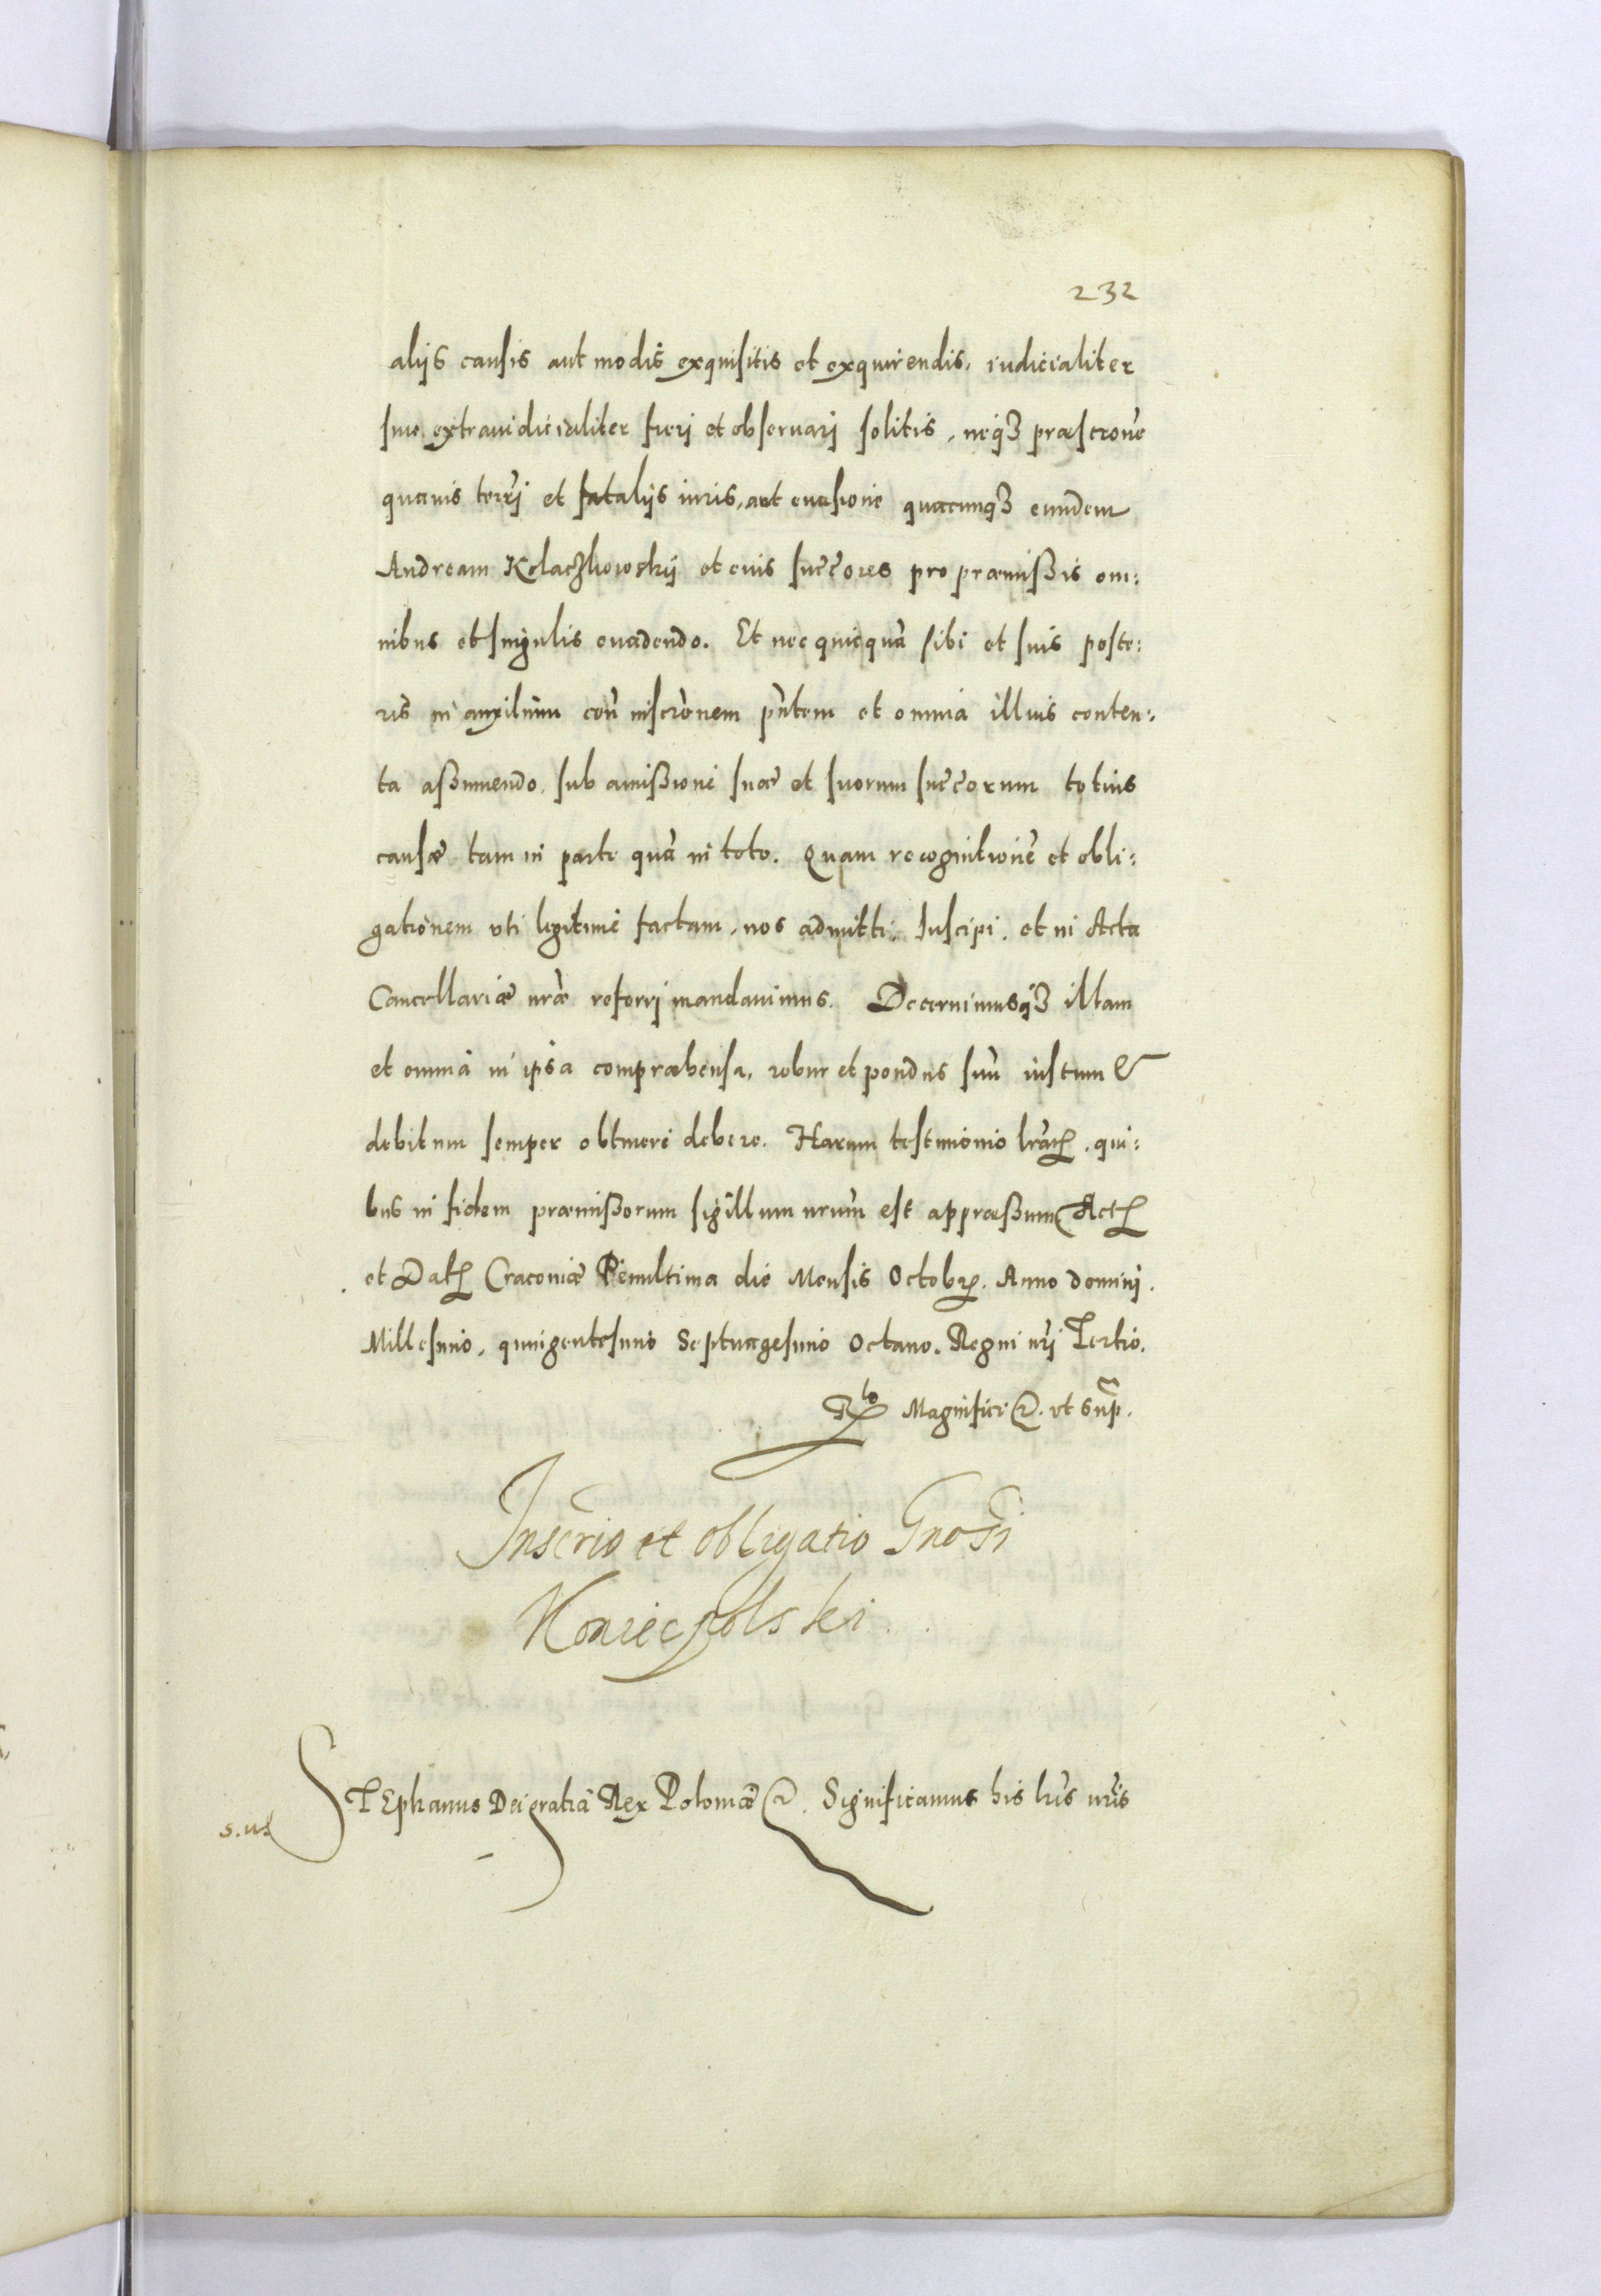 232
alijs causis aut modis exquisitis et exquirendis, iudicialiter
siue extraiudicialiter fierj et obseruarj solitis, neqȝ præscrõne
quauis terrj et fatalijs iuris, aut euasione quacunqȝ eundem
Andream Kolaczkowskij et eius succores pro præmissis om:
nibus et singulis euadendo. Et nec quicquã sibi et suis poste:
ris in auxilium coñ inscrõnem pñtem et omnia illius conten:
ta assumendo, sub amissione suæ et suorum succorum totius
causæ tam in parte quã in toto. Quam recognitionẽ et obli:
gationem uti legitime factam, nos admitti, suscipi, et in Acta
Cancellariæ nræ referrj mandauimus. Decernimusqȝ illam
et omnia in ipsa compræhensa, robur et pondus suũ iustum &
debitum semper obtinere debere. Harum testimonio lrarꝝ, qui:
bus in fidem præmissorum sigillum nrum est appræssum Actꝝ
et Datꝝ Craconiæ Penultima die Mensis Octobrꝭ. Anno dominj.
Millesimo, quingentesimo Septuagesimo Octauo. Regni nrj Tertio.
Rlo Magnifici &. ut sup.
Inscrio et obligatio Gnosi
Koniecpolski
STEphanus Dei gratia Rex Poloniæ &. Significamus his lris nris